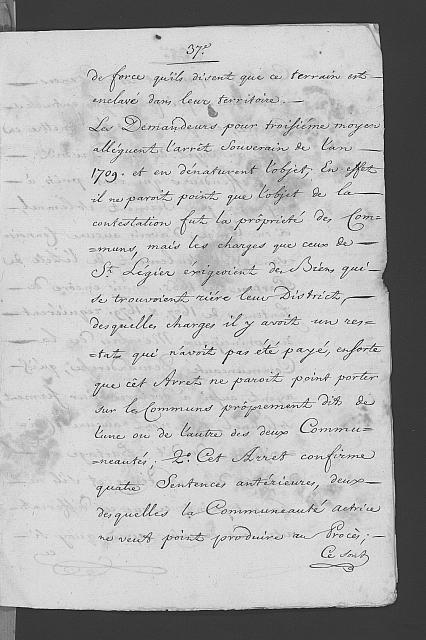 37.e
de force qu'ils disent que ce terrain est —
enclavé dans leur territoire. —
Les Demandeurs pour troisiéme moyen
alléguent l'arrêt Souverain de l'an —
1709. et en dénaturent l'objet; En effet
il ne paroit point que l'objet de la —
contestation fut la prôprieté des Com=
=muns, mais les charges que ceux de —
St. Légier exigeoient des Biens qui —
se trouvoient riére leur District, —
desquelles charges il y avoit un res=
=tat qui n'avoit pas été payé, ensorte
que cèt Arret ne paroit point porter
sur les Communs prôprement dits de
l'une ou de l'autre des deux Commu=
=neautés; 2.o Cet Arret confirme
quatre Sentences antérieures, deux —
desquelles la Communeauté actrice
ne veut point produire au Procès; —
Ce sont